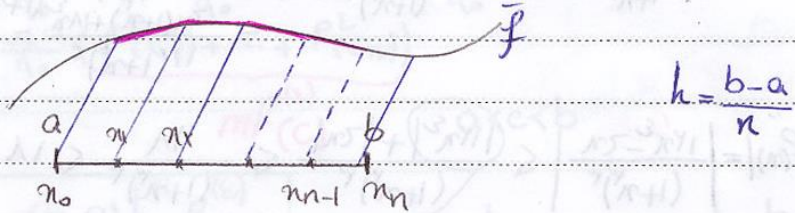 f
h = b-a / n
a x x b
x₀ xₙ₋₁ xₙ